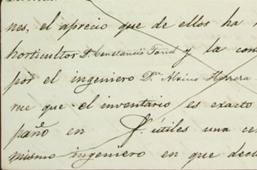 nes, el aprecio que de ellos ha
horticultor D. Constancio y la
por el ingeniero Dn. Alvino
me que el inventario es exacto
paño en útiles una
mismo ingeniero en que